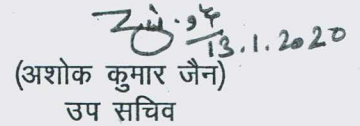 13.1.2020
(अशोक कुमार जैन)
उप सचिव